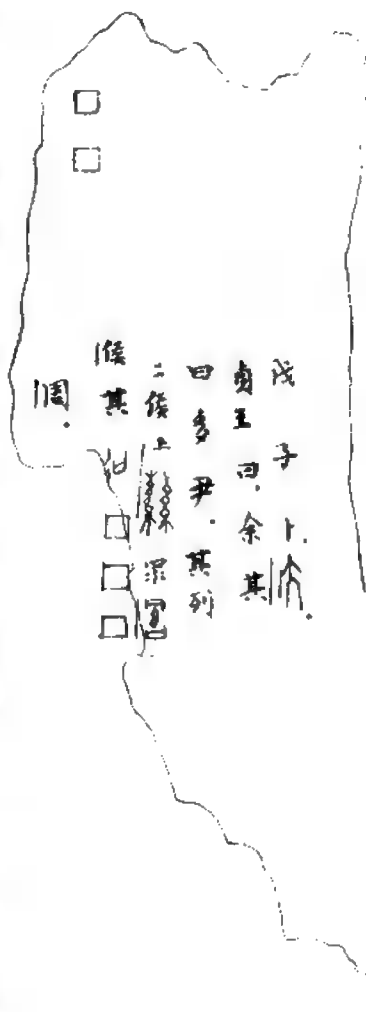 戊子卜,
貞王曰,余其
曰多尹。其列
二侯上 眔
侯其 □□□
周。
□□